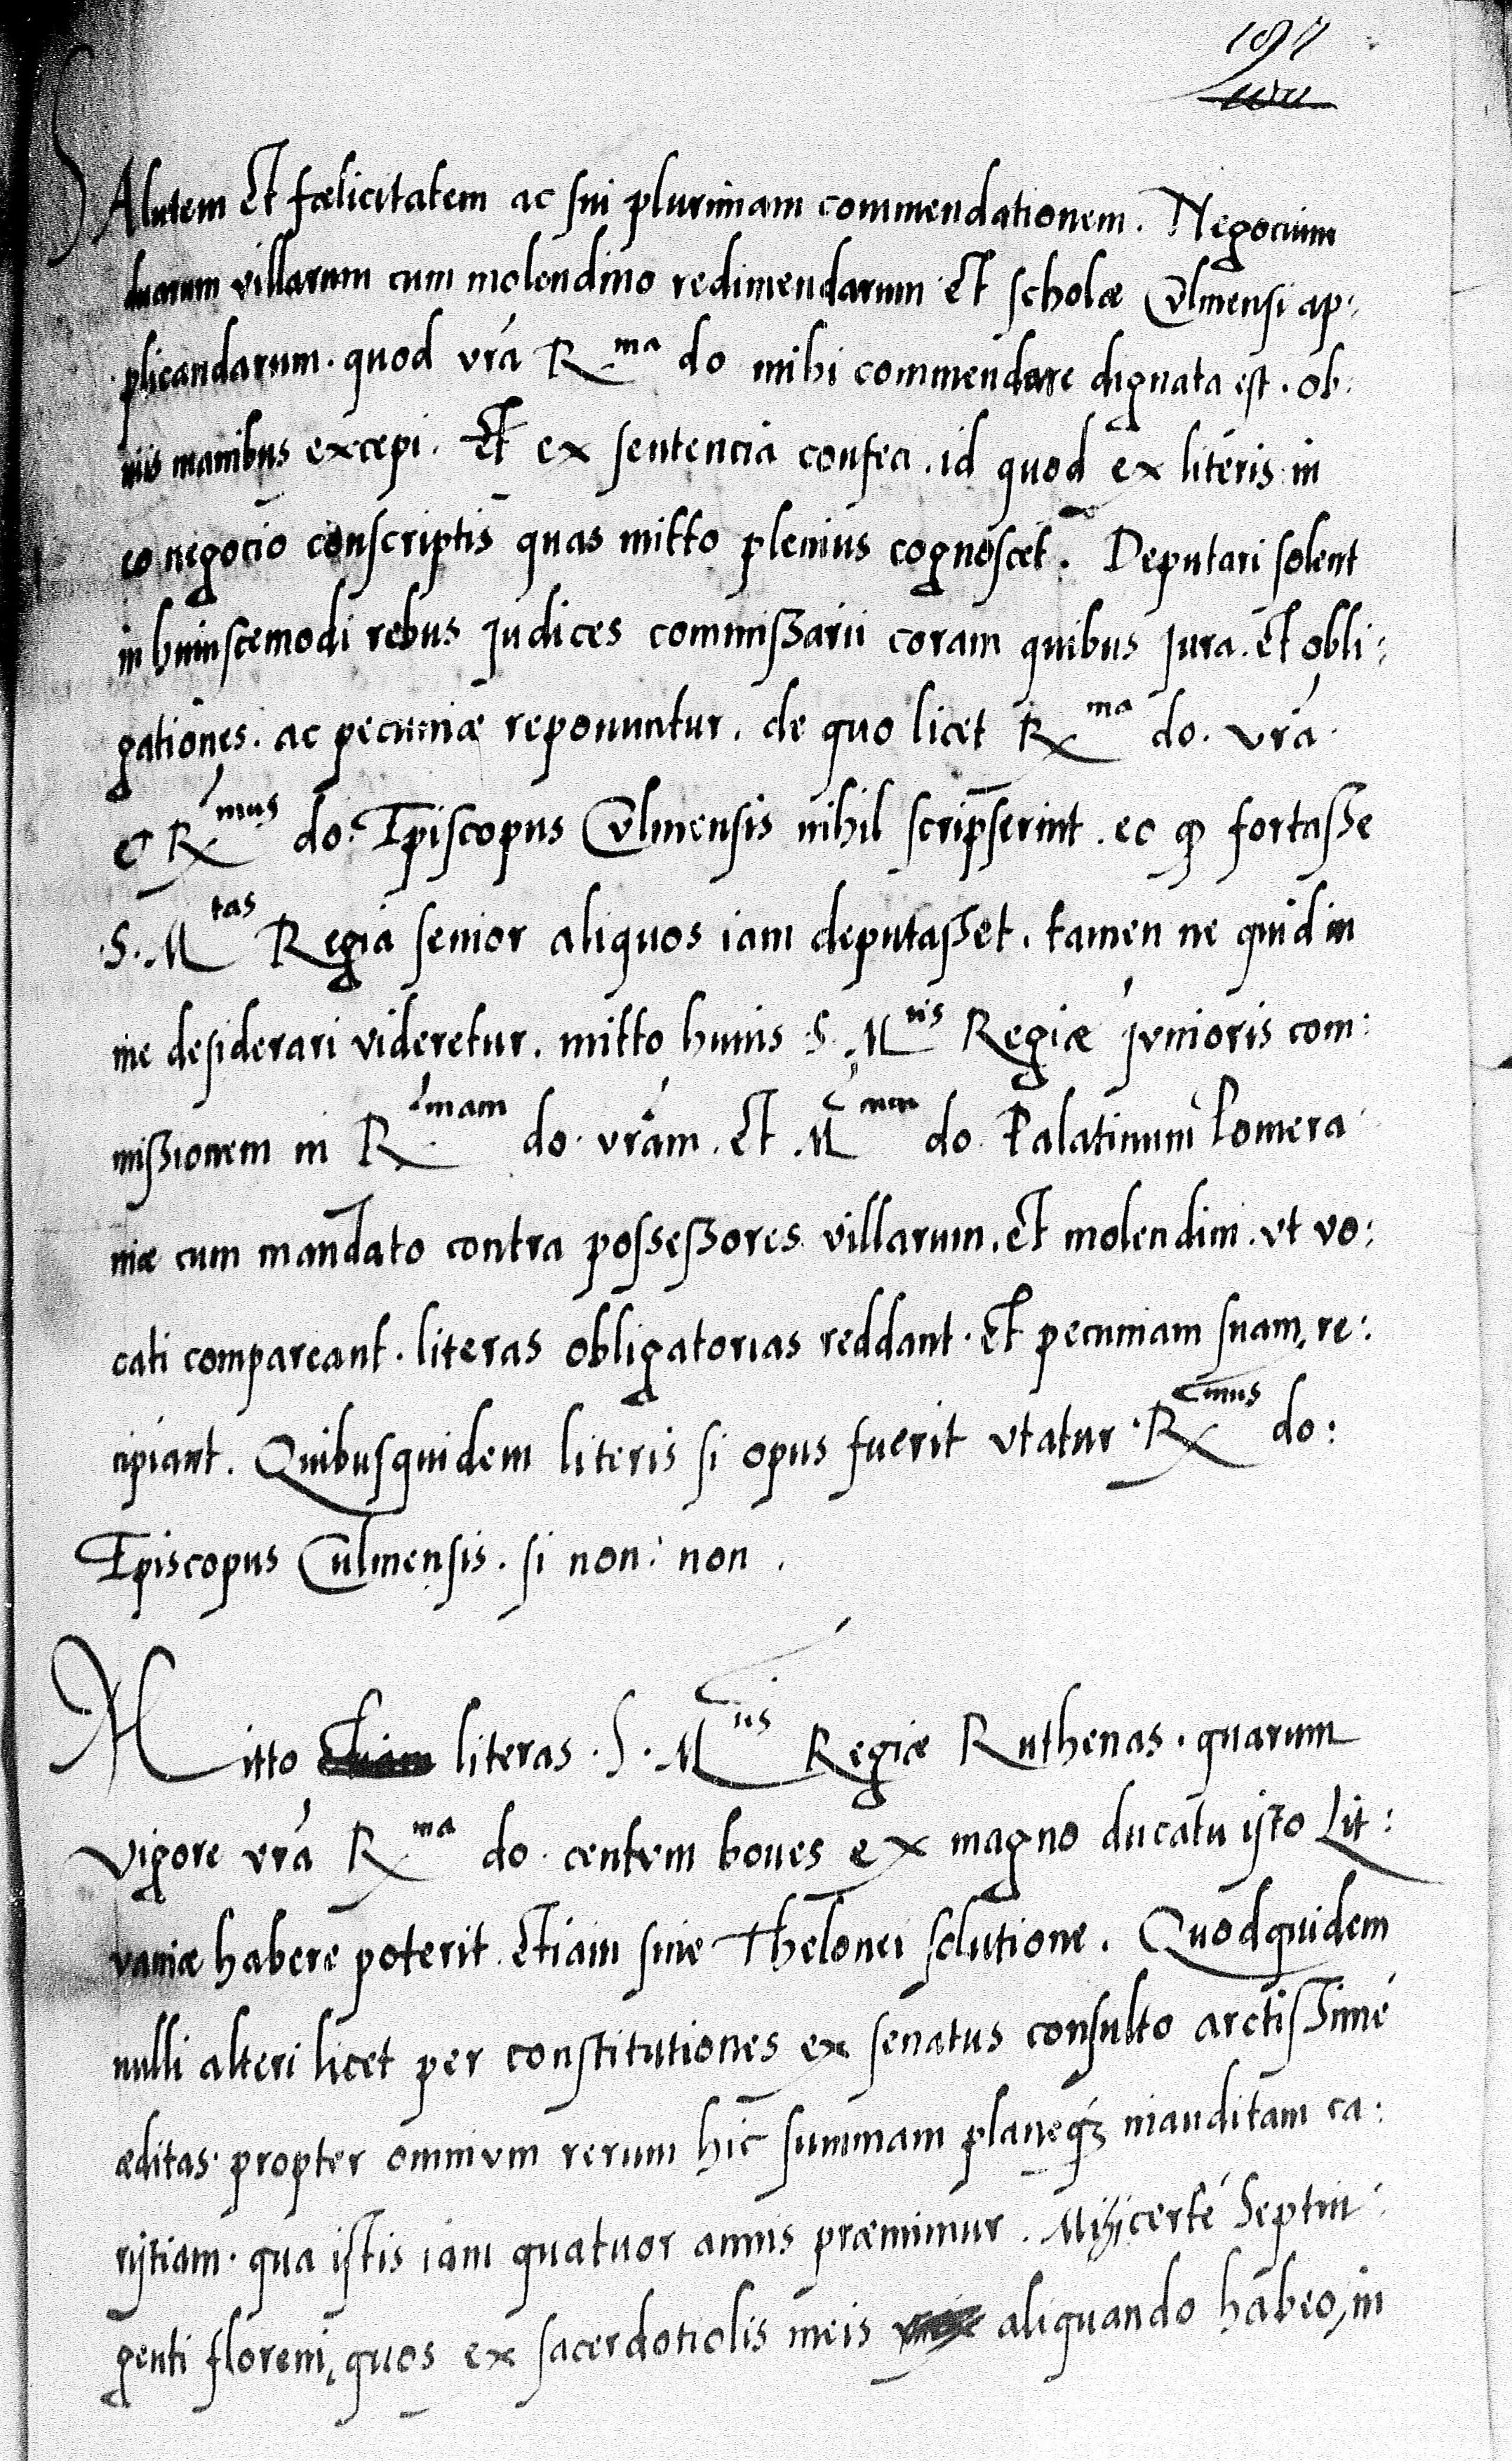 197
SAlutem Et fœlicitatem ac sui plurimam commendationem. Negocium
duarum villarum cum molendino redimendarum Et scholæ Culmensi ap:
plicandarum. quod vra R.ma do mihi commendare dignata est. ob:
viis manibus excepi. Et ex sentencia confeci. id quod ex literis in
eo negocio conscriptis quas mitto plenius cognoscet. Deputari solent
in huiuscemodi rebus Judices commissarii coram quibus Jura. Et obli:
gationes. ac pecuniæ reponuntur. de quo licet Rma do. vra
et Rmus do: Episcopus Culmensis nihil scripserint. eo quod fortasse
S. Mtas Regia senior aliquos iam deputasset. tamen ne quid in
me desiderari videretur. mitto huius S. Mtis Regiæ Junioris com:
missionem in R.mam do. vram. Et Mcum do. Palatinum Pomera
niæ cum mandato contra possessores villarum. Et molendini. vt vo:
cati compareant. literas obligatorias reddant. Et pecuniam suam re:
cipiant. Quibusquidem literis si opus fuerit vtatur Rmus do:
Episcopus Culmensis. si non: non.
Mitto literas S. Mtis Regiæ Ruthenas. quarum
vigore vra Rma do. centum boues ex magno ducatu isto Lit:
vaniæ habere poterit. Etiam sine Thelonei solutione. Quodquidem
nulli alteri licet per constitutiones ex senatus consulto arctissimé
æditas. propter omnium rerum hic summam planeque inauditam ca:
ristiam. qua istis iam quatuor annis præmimur. Mihi certé Septin:
genti floreni, quos ex sacerdotiolis meis aliquando habeo, in